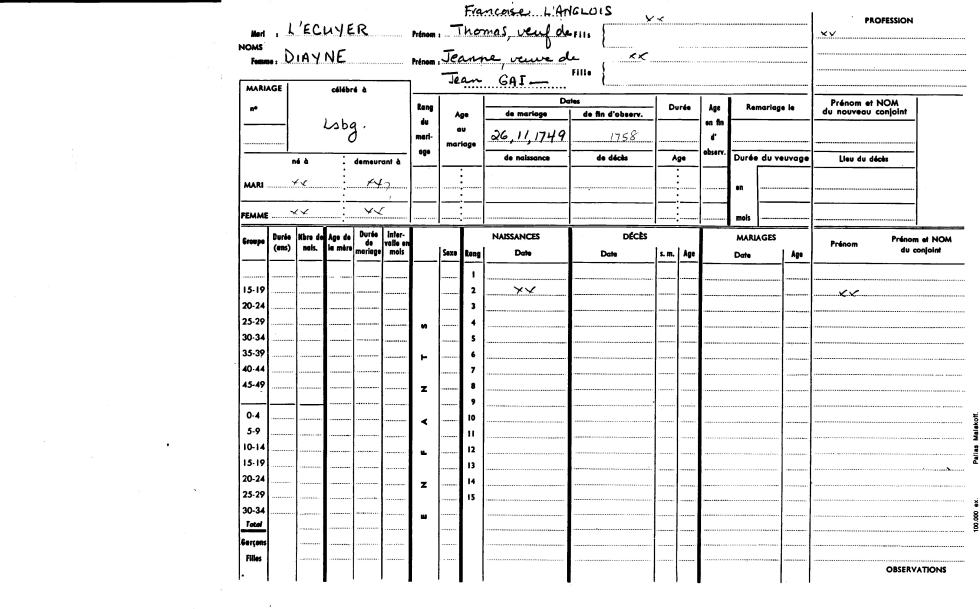 Francoise L'ANGLOIS
Mari : L'ECUYER Prénom : Thomas, veuf de Fils xx PROFESSION
xx
NOMS
Femme : DIAYNE Prénom : Jeanne, veuve de Fille xx
Jean GAI —
MARIAGE célébré à
n°
Lsbg.
né à demeurant à
MARI xx xx
FEMME xx xx
Rang du mari-age
Age au mariage
Dates
de mariage de fin d'observ.
26,11,1749 1758
de naissance de décès
Durée
Age
Age en fin d' observ.
Remariage le
Durée du veuvage
en
mois
Prénom et NOM du nouveau conjoint
Lieu du décès
Groupe Durée (ans) Nbre de nais. Age de la mère Durée de mariage Inter-valle en mois Sexe Rang NAISSANCES Date DÉCÈS Date s. m. Age MARIAGES Date Age Prénom Prénom et NOM du conjoint
1
15-19 2 xx xx
20-24 3
25-29 4
30-34 5
35-39 6
40-44 7
45-49 8
9
0-4 10
5-9 11
10-14 12
15-19 13
20-24 14
25-29 15
30-34
Total
Garçons
Filles
E N F A N T S
OBSERVATIONS
100.000 ex. Pallas Malakoff.